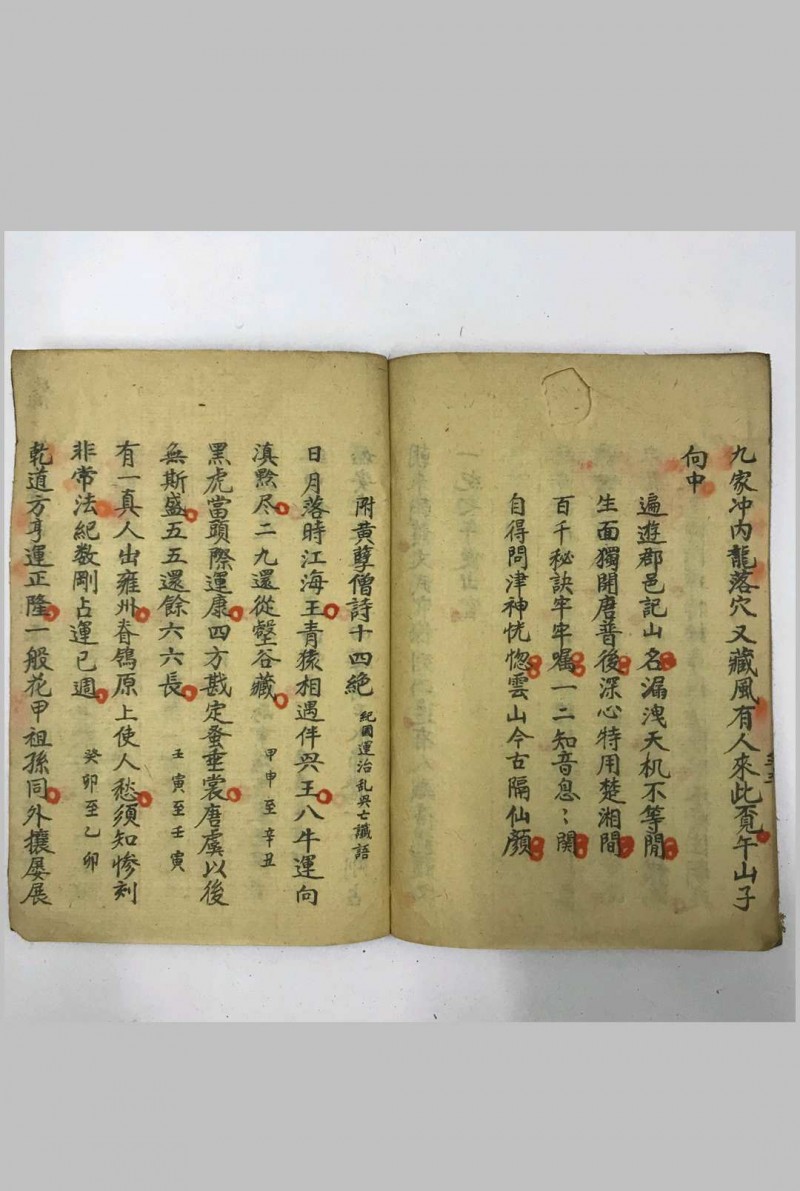 九家冲内龍落穴又藏風有人來此覔午山子
向中
遍遊郡邑記山名漏洩天机不等閒
生面獨開磨普後深心特用楚湘間
百千秘訣牢牢囑一二知音息〻関
自得問津神恍惚雲山今古隔仙顏
附黄孽僧詩十四絶 紀國運治乱興亡讖語
日月落時江海王青猿相遇伴與王八牛運向
滇黔尽二九還從壑谷藏 甲申至辛丑
黑虎當頭際運康四方戡定蚤垂裳唐虞以後
無斯盛五五還餘六六長 壬寅至壬寅
有一真人出雍州脊鴒原上使人愁須知慘刻
非常法紀数剛占運已週 癸卯至乙卯
乾道方亨運正隆一般花甲祖孫同外攘屡展